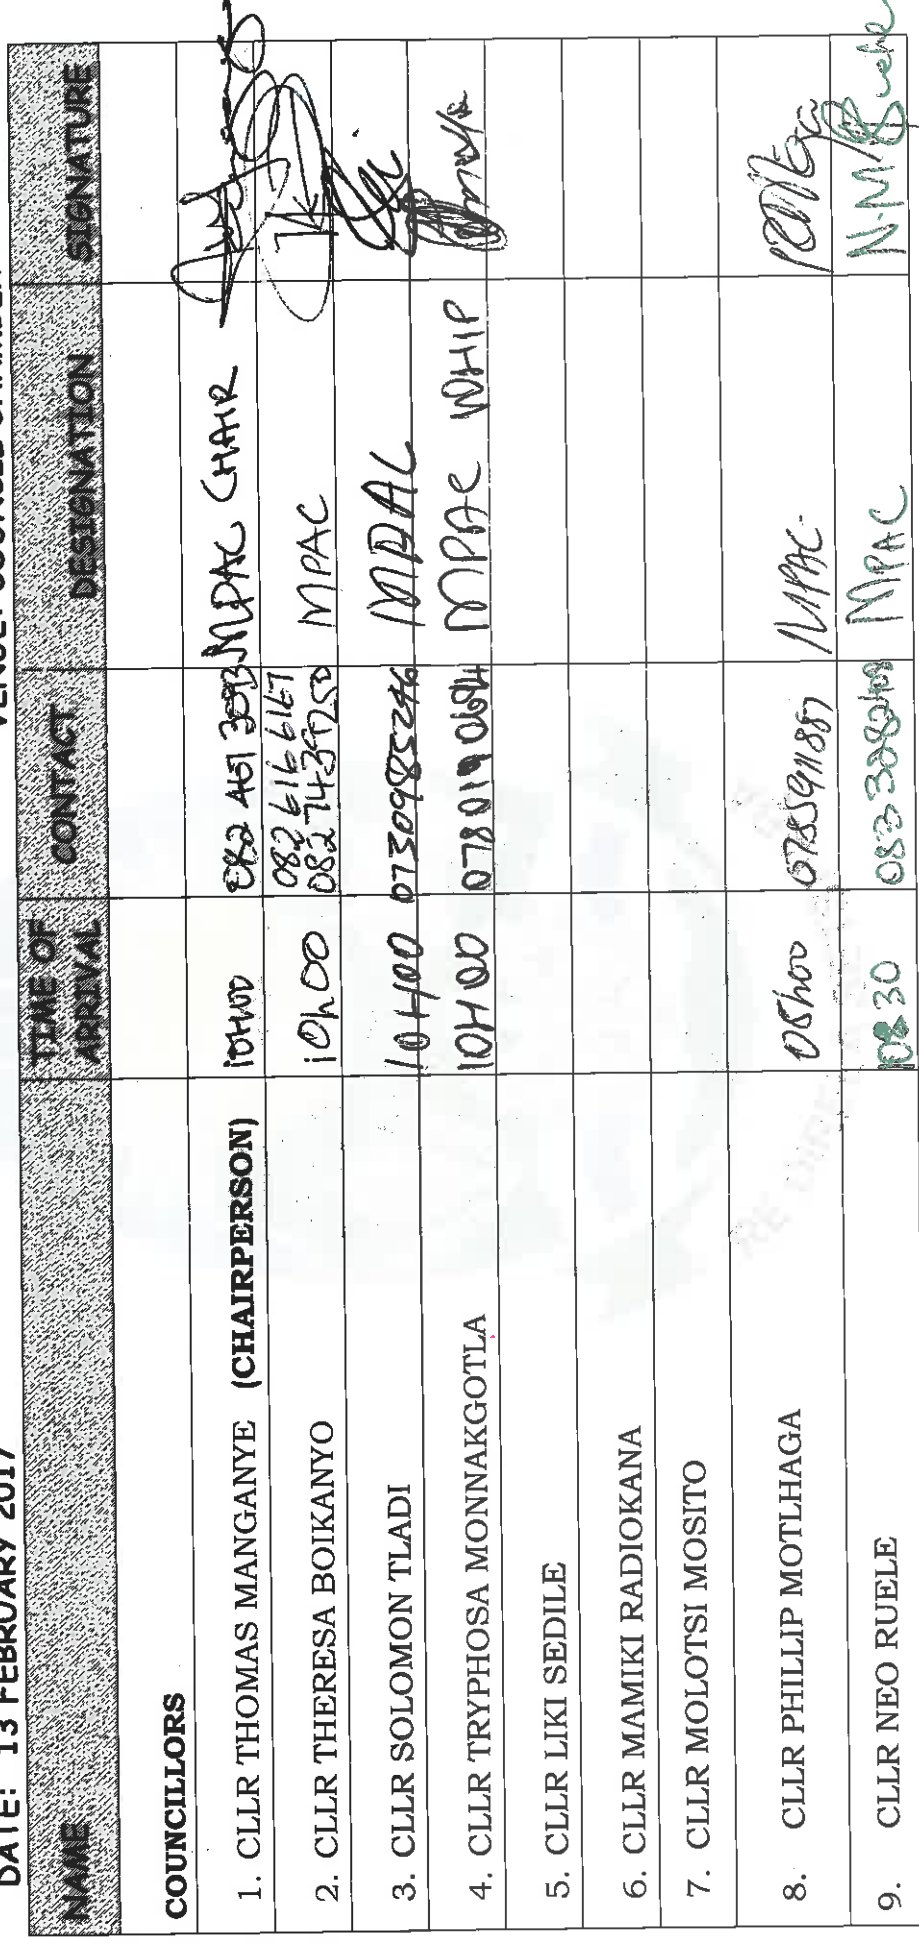 DATE: 13 FEBRUARY 2017
NAME TIME OF ARRIVAL CONTACT DESIGNATION SIGNATURE
COUNCILLORS
1. CLLR THOMAS MANGANYE (CHAIRPERSON) 10H00 082 461 3093 MPAC CHAIR
2. CLLR THERESA BOIKANYO 10h00 082 616 6167 MPAC
3. CLLR SOLOMON TLADI 10H00 0730985246 MPAC
4. CLLR TRYPHOSA MONNAKGOTLA 10H00 MPAC WHIP
5. CLLR LIKI SEDILE
6. CLLR MAMIKI RADIOKANA
7. CLLR MOLOTSI MOSITO
8. CLLR PHILLIP MOTLHAGA 08h00 0785911887 MPAC
9. CLLR NEO RUELE MPAC